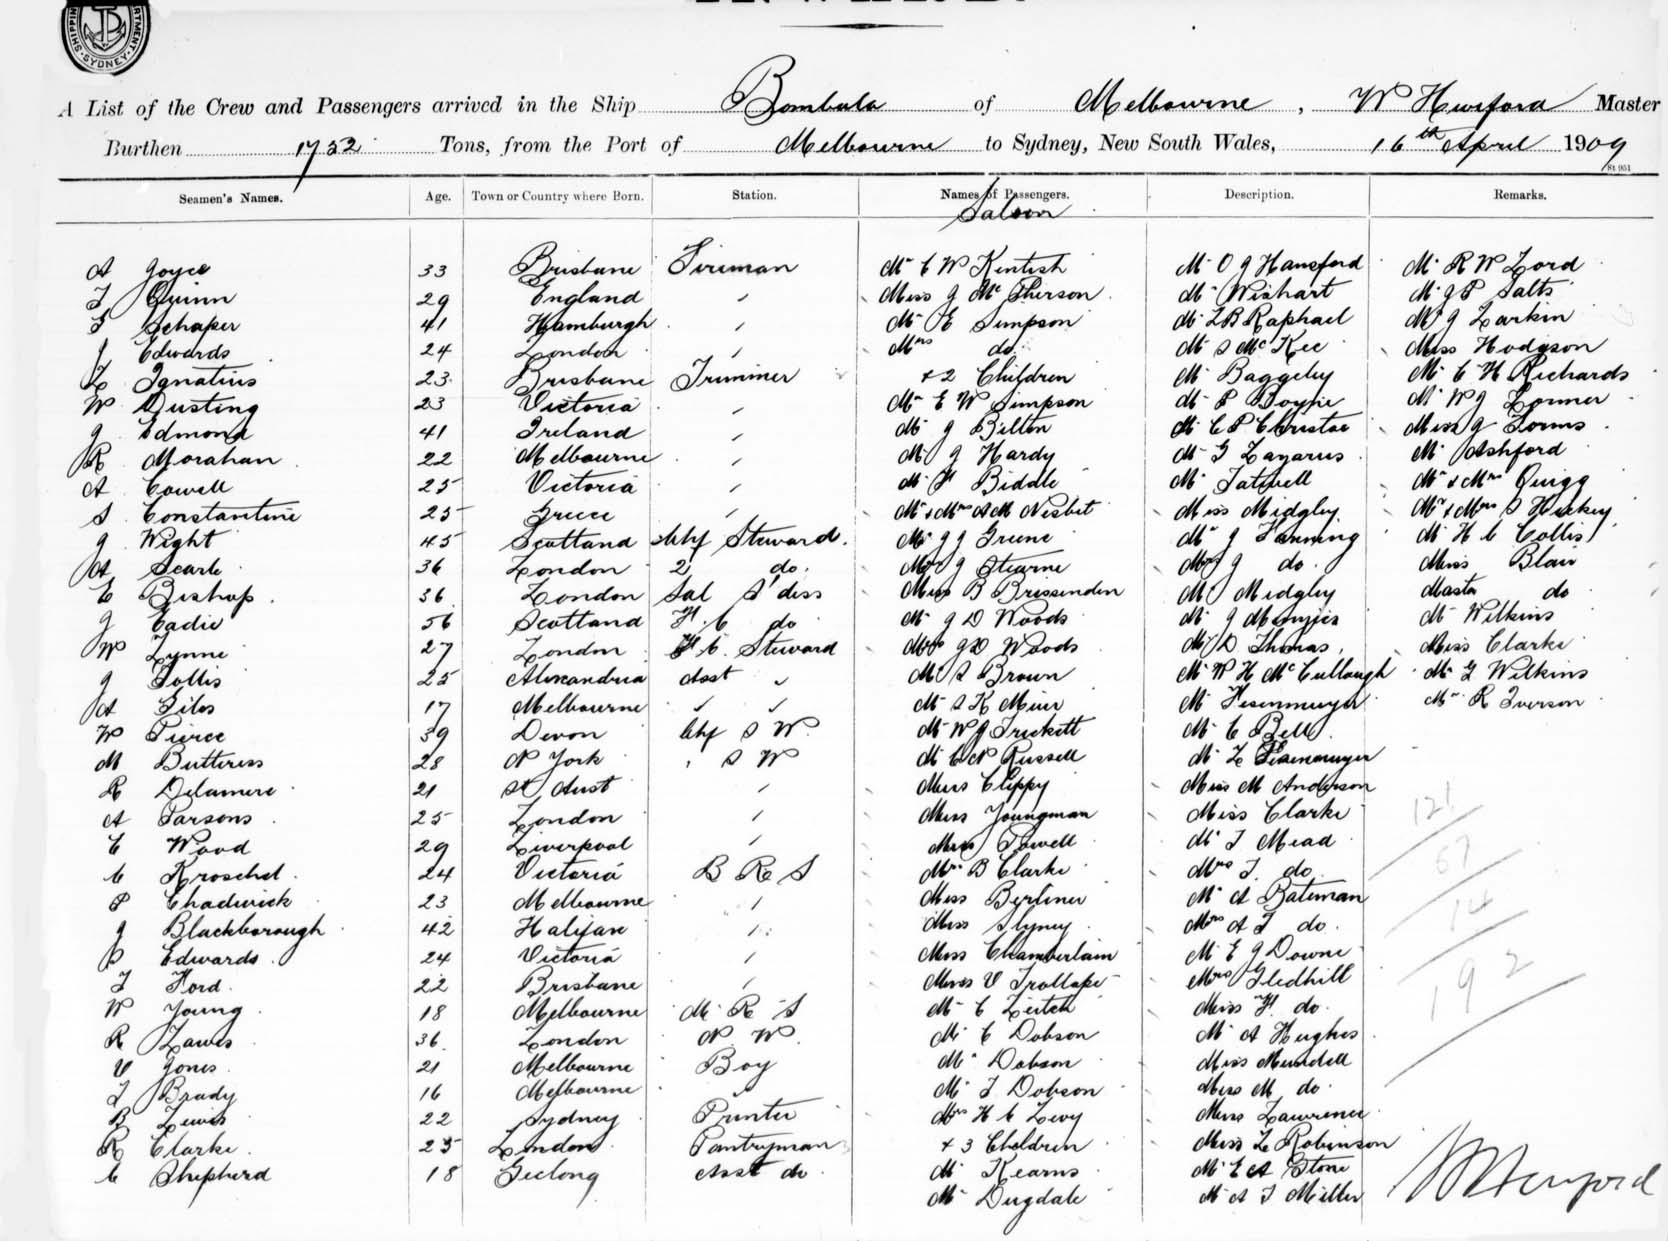 SHIPPING DEPARTMENT SYDNEY
A List of the Crew and Passengers arrived in the Ship Bombala of Melbourne, W Hurford Master
Burthen 1752 Tons, from the Port of Melbourne to Sydney, New South Wales, 16th April 1909
St 951
Seamen's Names. Age. Town or Country where Born. Station. Names of Passengers. Description. Remarks.
Saloon
A Joyce 33 Brisbane Fireman Mr C W Kentish Mr O J Hansford Mr R W Lord
T Quinn 29 England " Miss J McPherson Mr Wishart Mr J P Salts
F Schaper 41 Hamburgh " Mr E Simpson Mr L B Raphael Mr J Larkin
J Edwards 24 London " Mrs do Mr S McKee Miss Hodgson
L Ignatius 23 Brisbane Trimmer + 2 Children Mr Baggeley Mr C H Richards
W Dusting 23 Victoria " Mr E W Simpson Mr P Boyne Mr W J
J Edmond 41 Ireland " Mr J Bilton Mr C P Christoe Miss J
R Morahan 22 Melbourne " Mr J Hardy Mr G Lazarus Mr Ashford
A Cowell 25 Victoria " Mr H Biddle Mr Tatwell Mr & Mrs Quigg
S Constantine 25 Greece " Mr & Mrs A M Nesbit Miss Midgley Mr & Mrs S Hickey
J Wight 45 Scotland Chf Steward Mr J J Greene Mr J Fanning Mr H C Collis
A Searle 36 London 2 do. Mrs J Stearne Mrs J do. Miss Blair
E Bishop 36 London Sal S'dess Miss B Brissenden Mr Midgley Master do
J Eadie 56 Scotland F. C do Mr J D Woods Mr J Menzies Mr Wilkins
W Lynne 27 London F. C. Steward Mrs J D Woods Mr D Thomas Miss Clarke
J Follis 25 Alexandria Asst " Mr S Brown Mr W H McCullough Mr G Wilkins
A Giles 17 Melbourne " " Mr S K Muir Mr Fesenmeyer Mr R Iverson
W Pierce 39 Devon Chf S W Mr W J Trickett Mr C Bell
M Buttress 28 N York " S W Mr C N Russell Mr L Fesenmeyer
R Delamere 21 St Aust " Miss Clippy Miss M Anderson
A Parsons 25 London " Miss Youngman Miss Clarke
E Wood 29 Liverpool " Miss Powell Mr T Mead
C Kroschel 24 Victoria B R S Mrs B Clarke Mrs T. do
P Chadwick 23 Melbourne " Miss Berliner Mr A Bateman
J Blackborough 42 Halifax " Miss Slyney Mrs A T do.
P Edwards 24 Victoria " Miss Chamberlain Mr E J Downe
T Ford 22 Brisbane " Miss V Trollope Mrs Gledhill
W Young 18 Melbourne M R S Mr C Leitch Miss F. do.
R Laws 36 London N. W. Mr C Dobson Mr A Hughes
V Jones 21 Melbourne Boy Mr Dobson Miss Mundell
T Brady 16 Melbourne " Mr T Dobson Miss M. do
B Lewis 22 Sydney Printer Mrs H C Levy Miss Lawrence
R Clarke 25 London Pantryman + 3 Children Miss L Robinson
C Shepherd 18 Geelong Asst do Mr Kearns Mr E A Stone
Mr Dugdale Mr A T Miller
121
67
14
192
W Hurford